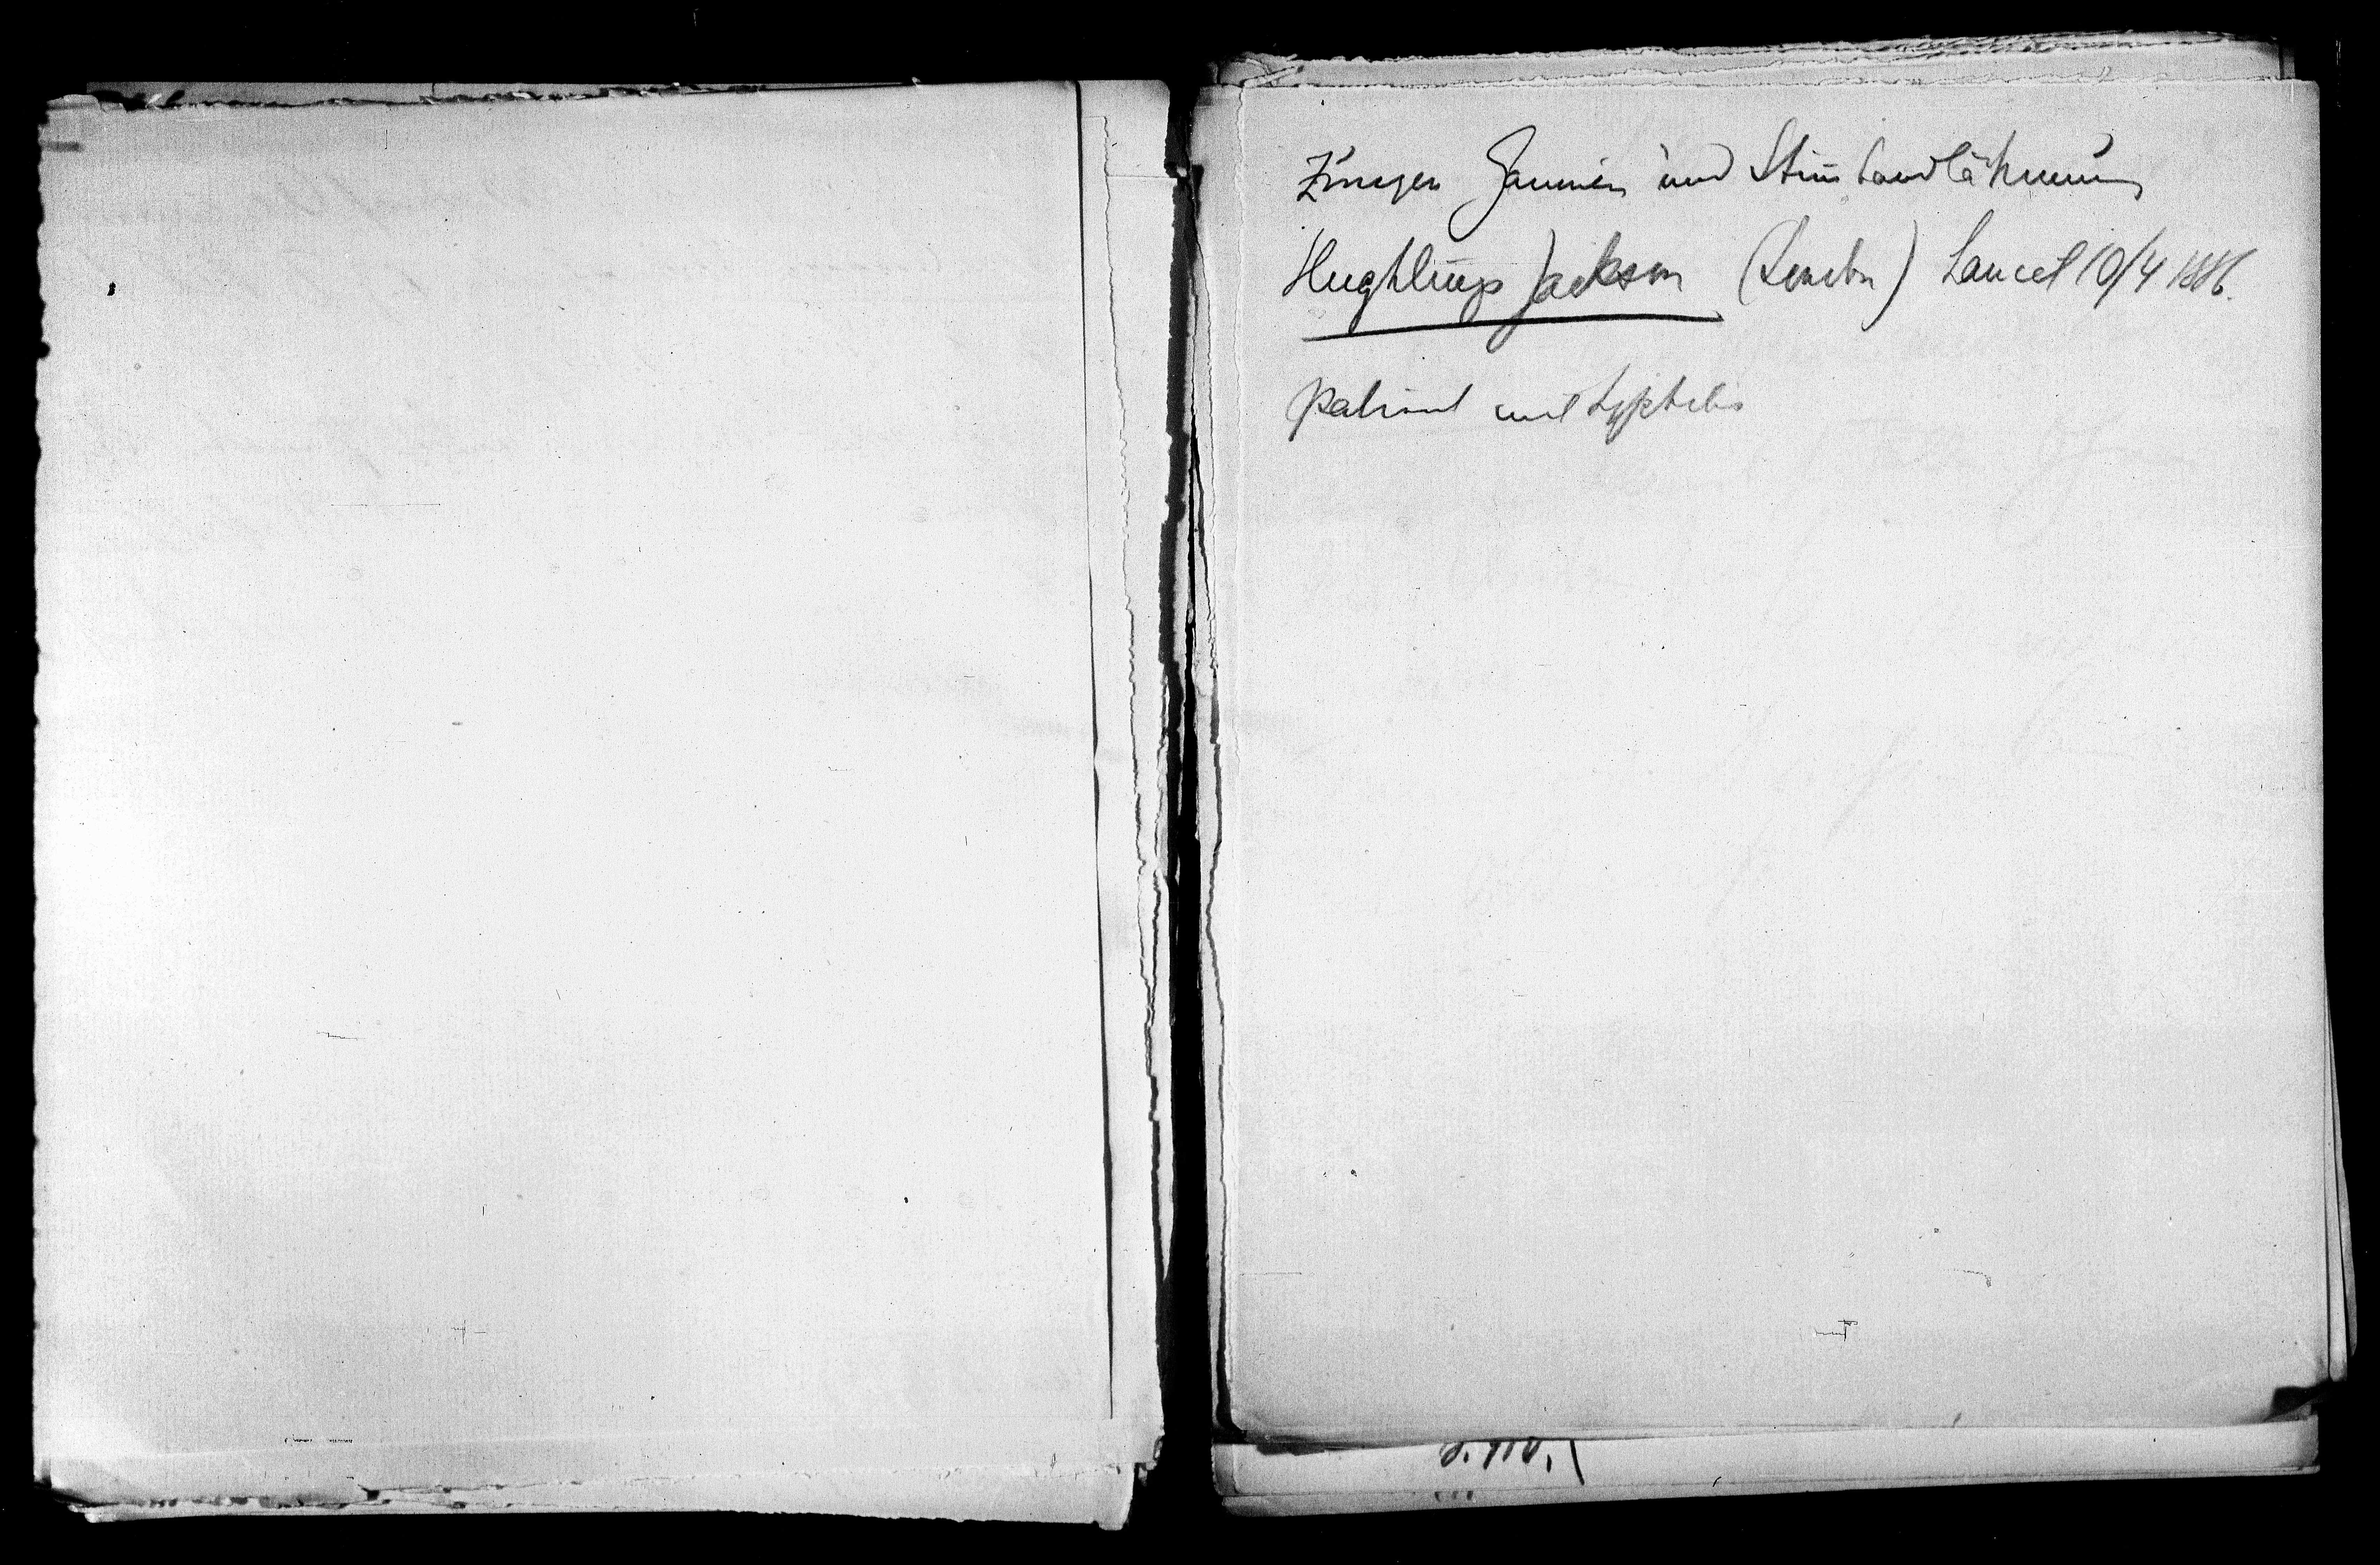 Zungen Gaumen und Stimbandlähmung
Hughlings Jackson (London) Lancet 10/4 1886.
Patient mit Syphilis